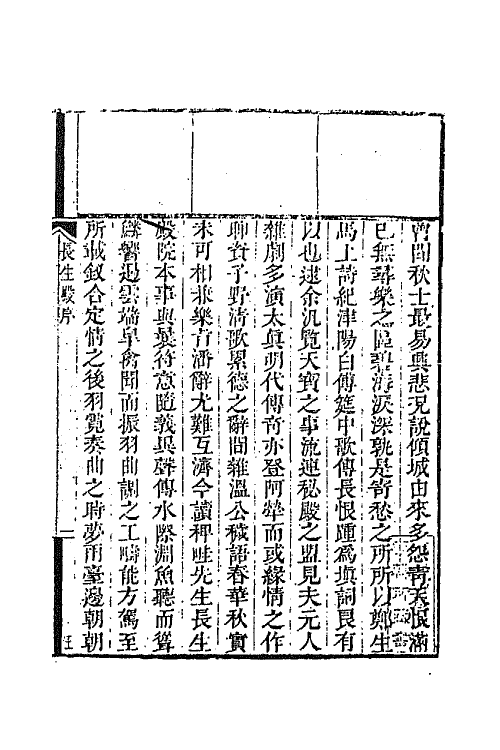 嘗聞秋士最易興悲况說傾城由來多怨青天恨滿
已無尋樂之區碧海淚深孰是寄愁之所所以鄭生
馬上詩紀津陽白傅筵中歌傳長恨踵爲塡詞良有
以也逮余汎覽天寶之事流連秘殿之盟見夫元人
雜劇多演太真明代傳奇亦登阿犖而或緣情之作
聊資子野清歌累德之辭間雜溫公穢語春華秋實
未可相兼樂旨潘辭尤難互濟今讀稗畦先生長生
殿院本事與曩符意隨義異聲傳水際淵魚聽而聳
鱗響遏雲端皐禽聞而振羽曲調之工疇能方駕至
所載釵合定情之後羽霓奏曲之時夢雨臺邊朝朝
長生殿序
一
汪